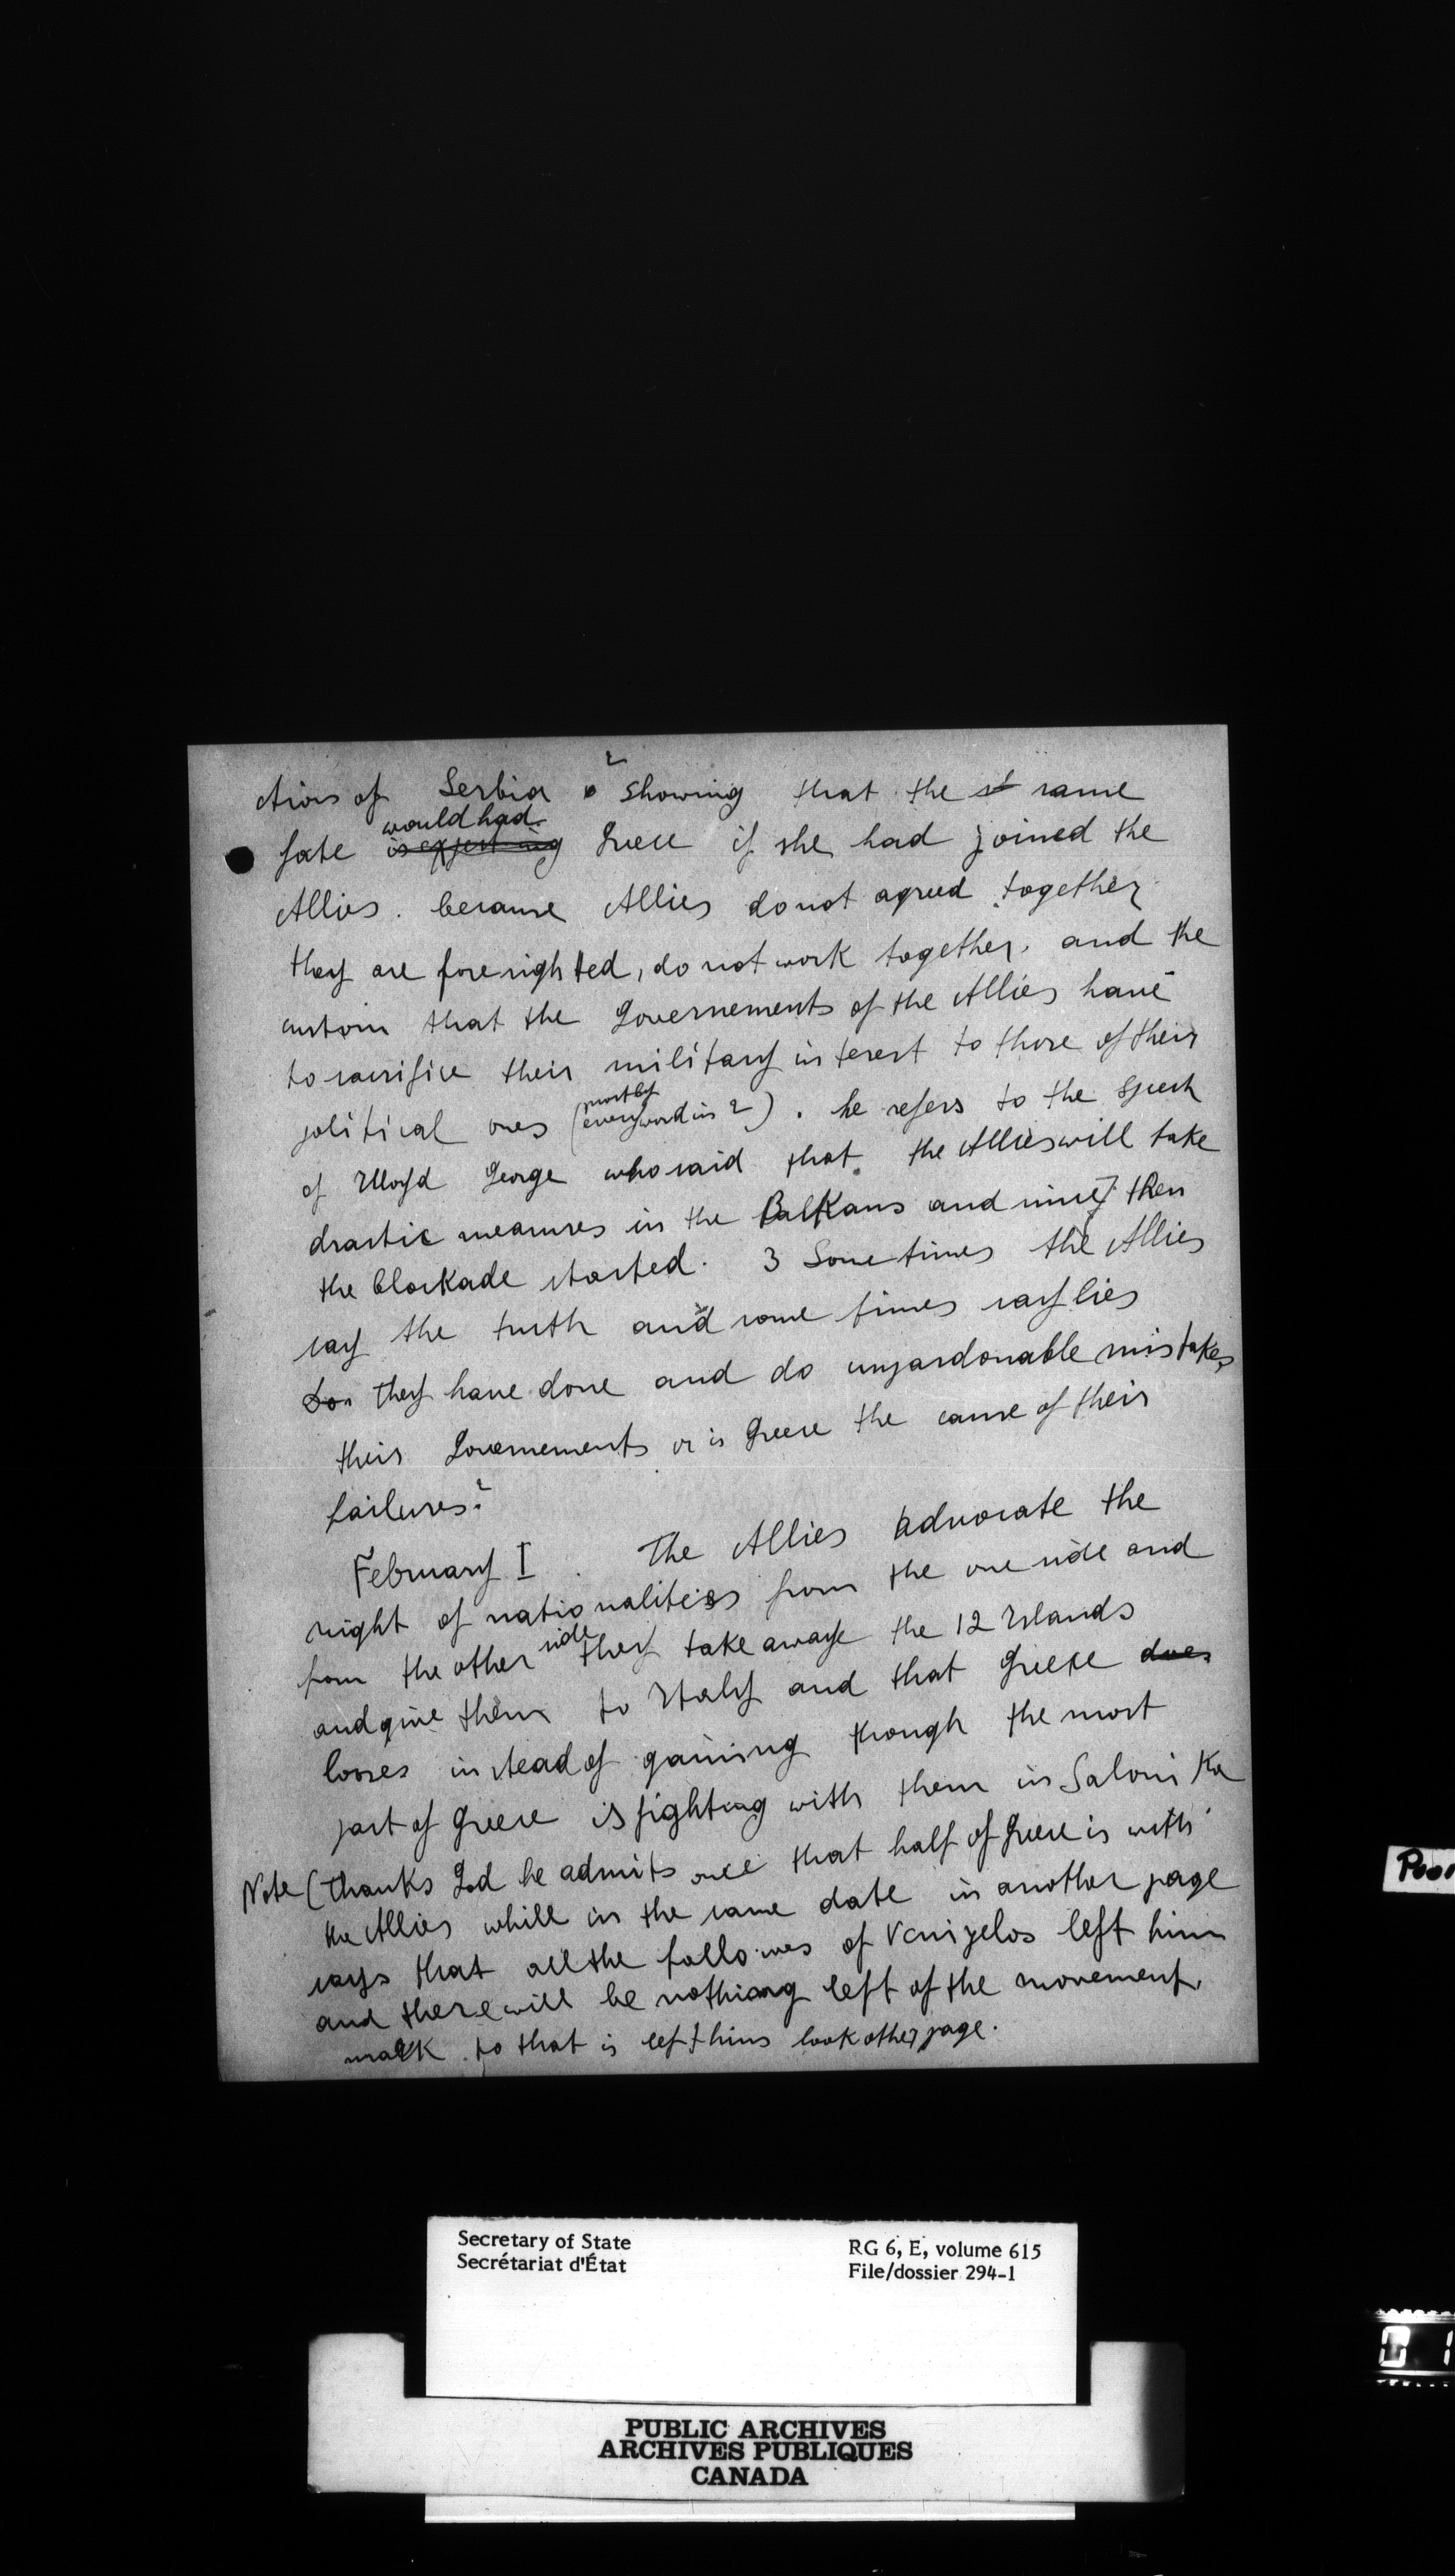 ction of Serbia 2 showing that the same
fate would had Greece if she had joined the
Allies. because Allies do not agreed together
they are foresighted, do not work together. and the
custom that the Governements of the Allies have
to sacrifice their military interest to those of their
political ones (mostly every word in 2). he refers to the speech
of Lloyd George who said that the Allies will take
drastic measures in the Balkans and since then
the blockade started. 3 Some times the Allies
say the truth and some times say lies
they have done and do unpardonable mistakes
their Governements or is Greece the cause of their
failures?
February I. The Allies advocate the
right of nationalities from the one side and
from the other side they take away the 12 Islands
and give them to Italy and that Greece does
looses instead of gaining though the most
part of Greece is fighting with them in Salonika
Note (thanks God he admits once that half of Greece is with
the Allies while in the same date in another page
says that all the followes of Venizelos left him
and there will be nothing left of the movement.
mark to that is left him look other page.
Secretary of State
Secrétariat d'État
RG 6, E, volume 615
File/dossier 294-1
PUBLIC ARCHIVES
ARCHIVES PUBLIQUES
CANADA